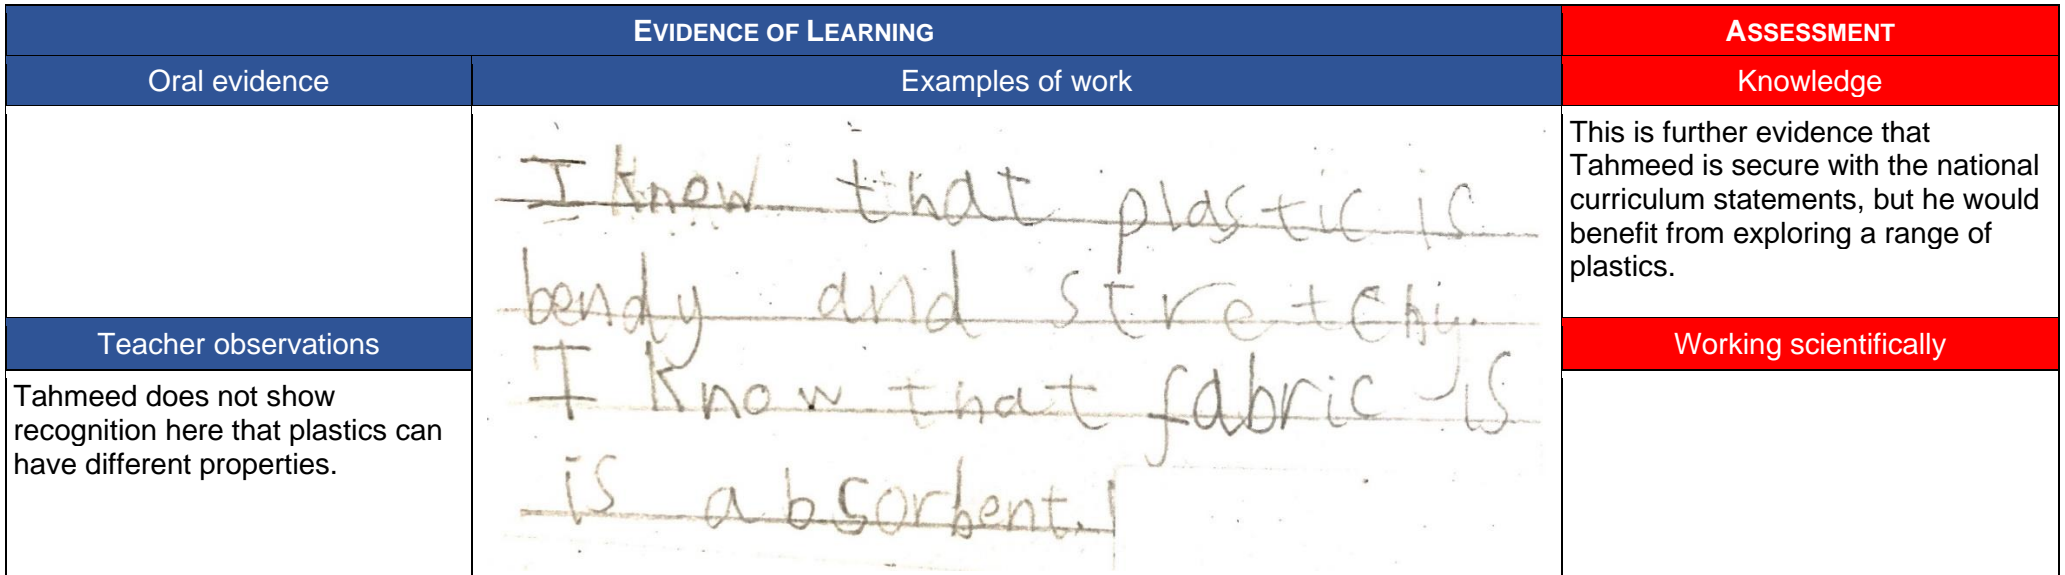 EVIDENCE OF LEARNING
ASSESSMENT
Oral evidence
Examples of work
Knowledge
I know that plastic is
bendy and stretchy.
I know that fabric is
is absorbent.
This is further evidence that
Tahmeed is secure with the national
curriculum statements, but he would
benefit from exploring a range of
plastics.
Teacher observations
Working scientifically
Tahmeed does not show
recognition here that plastics can
have different properties.